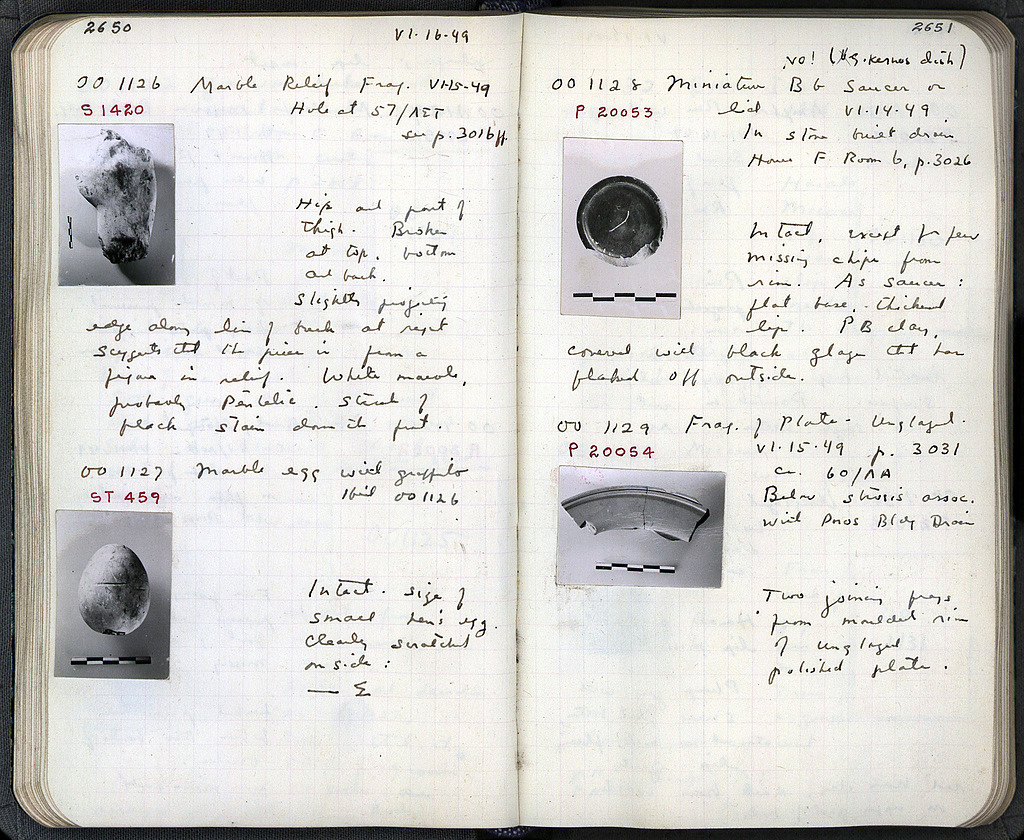 2650
VI·16·49
OO 1126 Marble Relief Frag. VI·15·49
S 1420
Hole at 57/ΛΣΤ
see p. 3016 ff
Hip and part of
thigh. Broken
at top, bottom
and back.
Slightly projecting
edge along line of break at right
suggests that the piece is from a
figure in relief. White marble,
probably Pentelic. Streak of
black stain down the front.
OO 1127 Marble egg with graffito
ST 459
Ibid OO 1126
Intact. Size of
small hen's egg.
Clearly scratched
on side:
— Σ
2651
no! (kernos dish)
OO 1128 Miniature BG Saucer or
P 20053
lid VI·14·49
In stone built drain
House F Room 6, p. 3026
Intact, except for few
missing chips from
rim. As saucer:
flat base, thickened
lip. PB clay,
covered with black glaze that has
flaked off outside.
OO 1129 Frag. of Plate - Unglazed.
P 20054
VI·15·49 p. 3031
ca. 60/ΛΑ
Below strosis assoc.
with Poros Bldg Drain
Two joining frags
from moulded rim
of unglazed
polished plate.